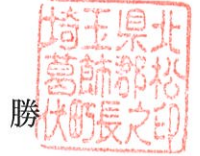 勝
埼玉県北
葛飾郡松
伏町長之印